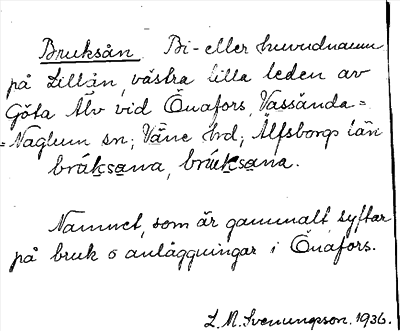 Bruksån. Bi- eller huvudnamn
på Lillån, västra lilla leden av
Göta Älv vid Önafors, Vassända=
=Naglum sn; Väne hrd; Älfsborgs län
bruksana, bruksana.
Namnet, som är gammalt, syftar
på bruk o anläggningar i Önafors.
L. M. Svenungsson. 1936.